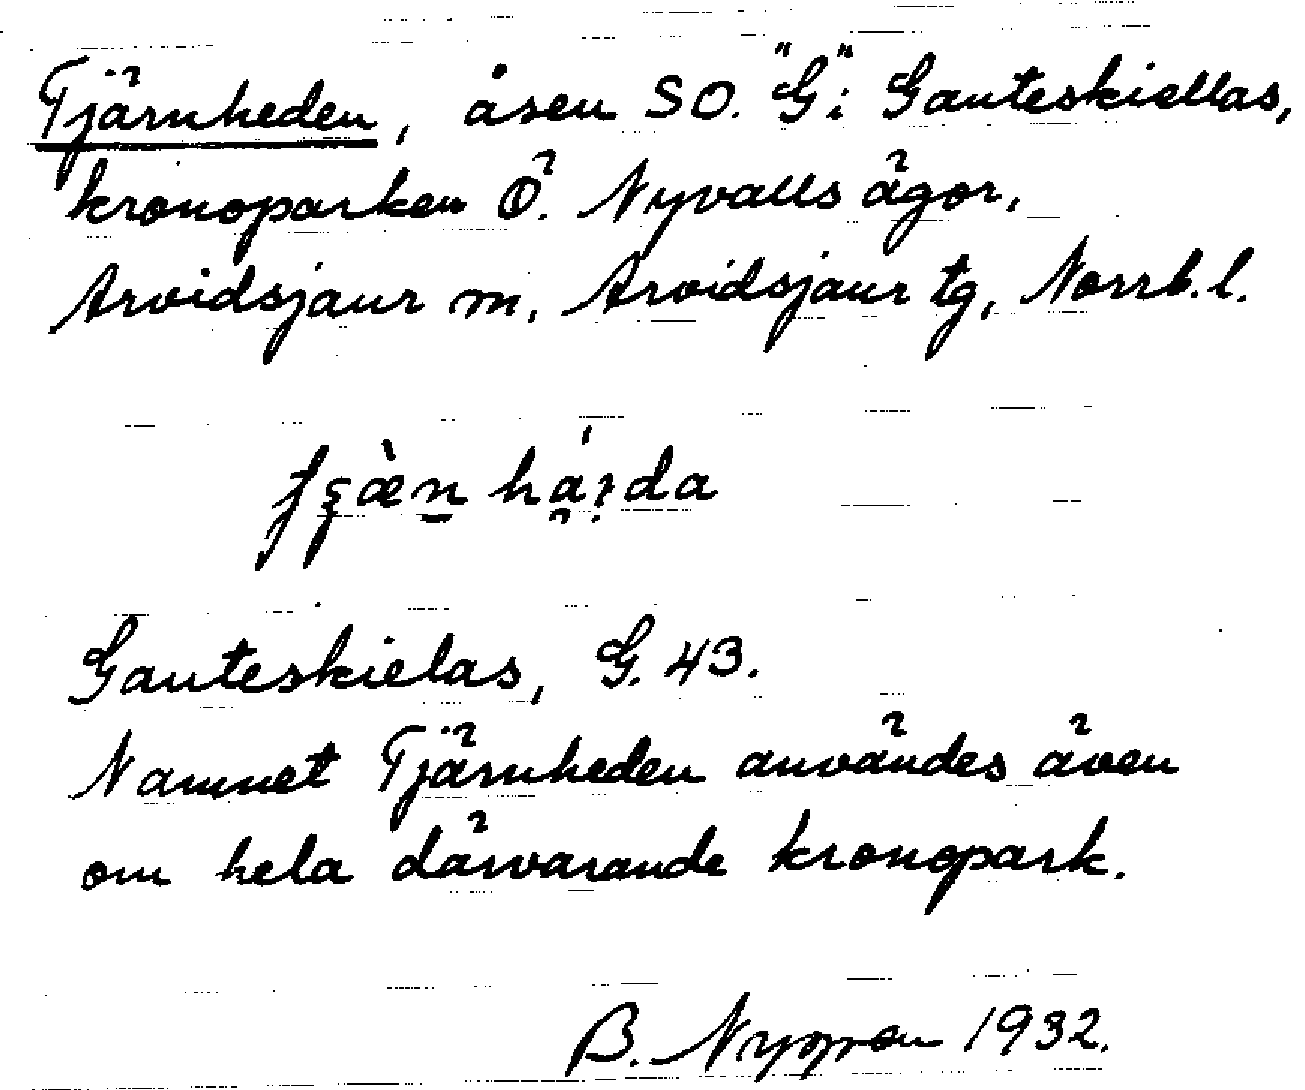 Tjärnheden, åsen SO. "G" i Gauteskiellas,
kronoparken Ö. Nyvalls ägor,
Arvidsjaur m. Arvidsjaur tg, Norrb. l.
Gauteskielas, G. 43.
Namnet Tjärnheden användes även
om hela därvarande kronopark.
B. Nyman 1932.